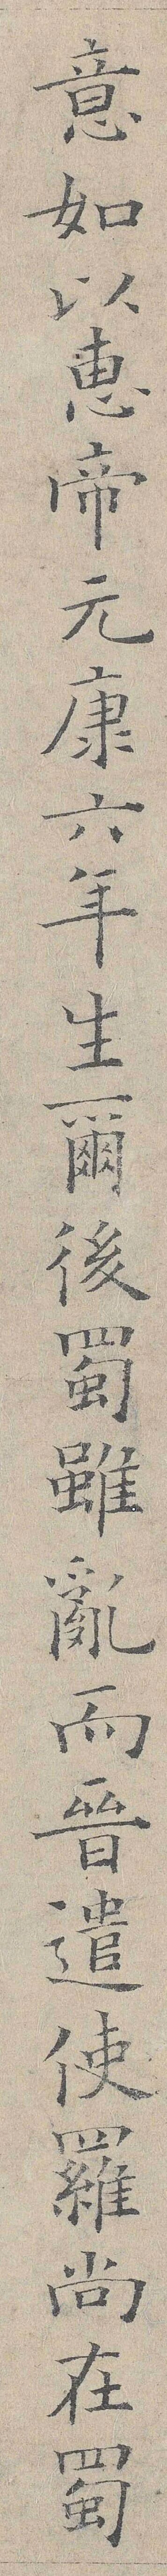 意如以惠帝元康六年生爾後蜀雖亂而晉遣使羅尚在蜀